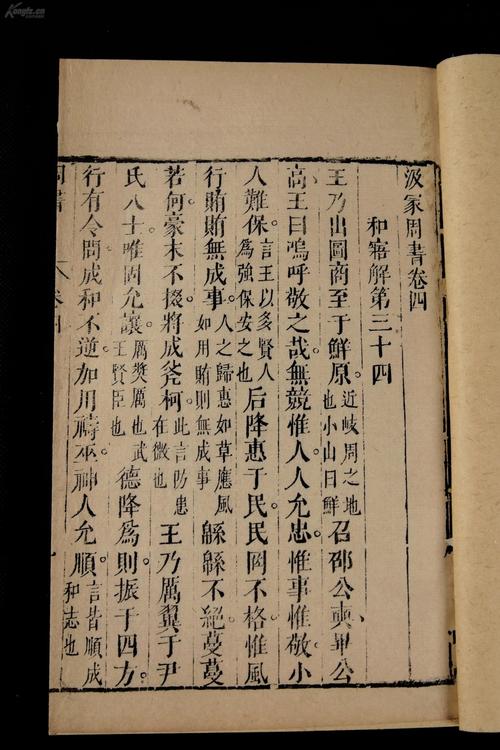 汲冢周書卷四
和寤解第三十四
王乃出圖商至于鮮原近岐周之地也小山曰鮮召邵公奭畢公
高王曰嗚呼敬之哉無競惟人人允忠惟事惟敬小
人難保言王以多賢人為強保安之也后降惠于民民罔不格惟風
行賄賄無成事人之歸惠如草應風如用賄則無成事緜緜不絕蔓蔓
若何豪末不掇將成斧柯此言防患在微也王乃厲翼于尹
氏八士唯固允讓厲奬厲也武王賢臣也德降為則振于四方
行有令問成和不逆加用禱巫神人允順言皆順成和志也